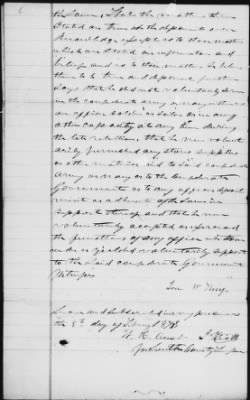 the same; that the matters therein
stated are true of the deponents own
knowledge except as to those matters
which are stated on information and
belief and as to those matters he believes
them to be true and deponent further
says that he did not voluntarily serve
in the confederate army or navy either as
an officer soldier or sailor or in any
other capacity at any time during
the late rebellion that he never volun-
tarily furnished any stores supplies
or other material aid to said confederate
army or navy or to the confederate
Government or to any officer depart-
ment or adherent of the same in
support thereof and that he never
voluntarily accepted or exercised
the functions of any office whatsoever
under or yielded voluntary support
to the said confederate Government

Sworn and subscribed in my presence
the 8th day of 1878